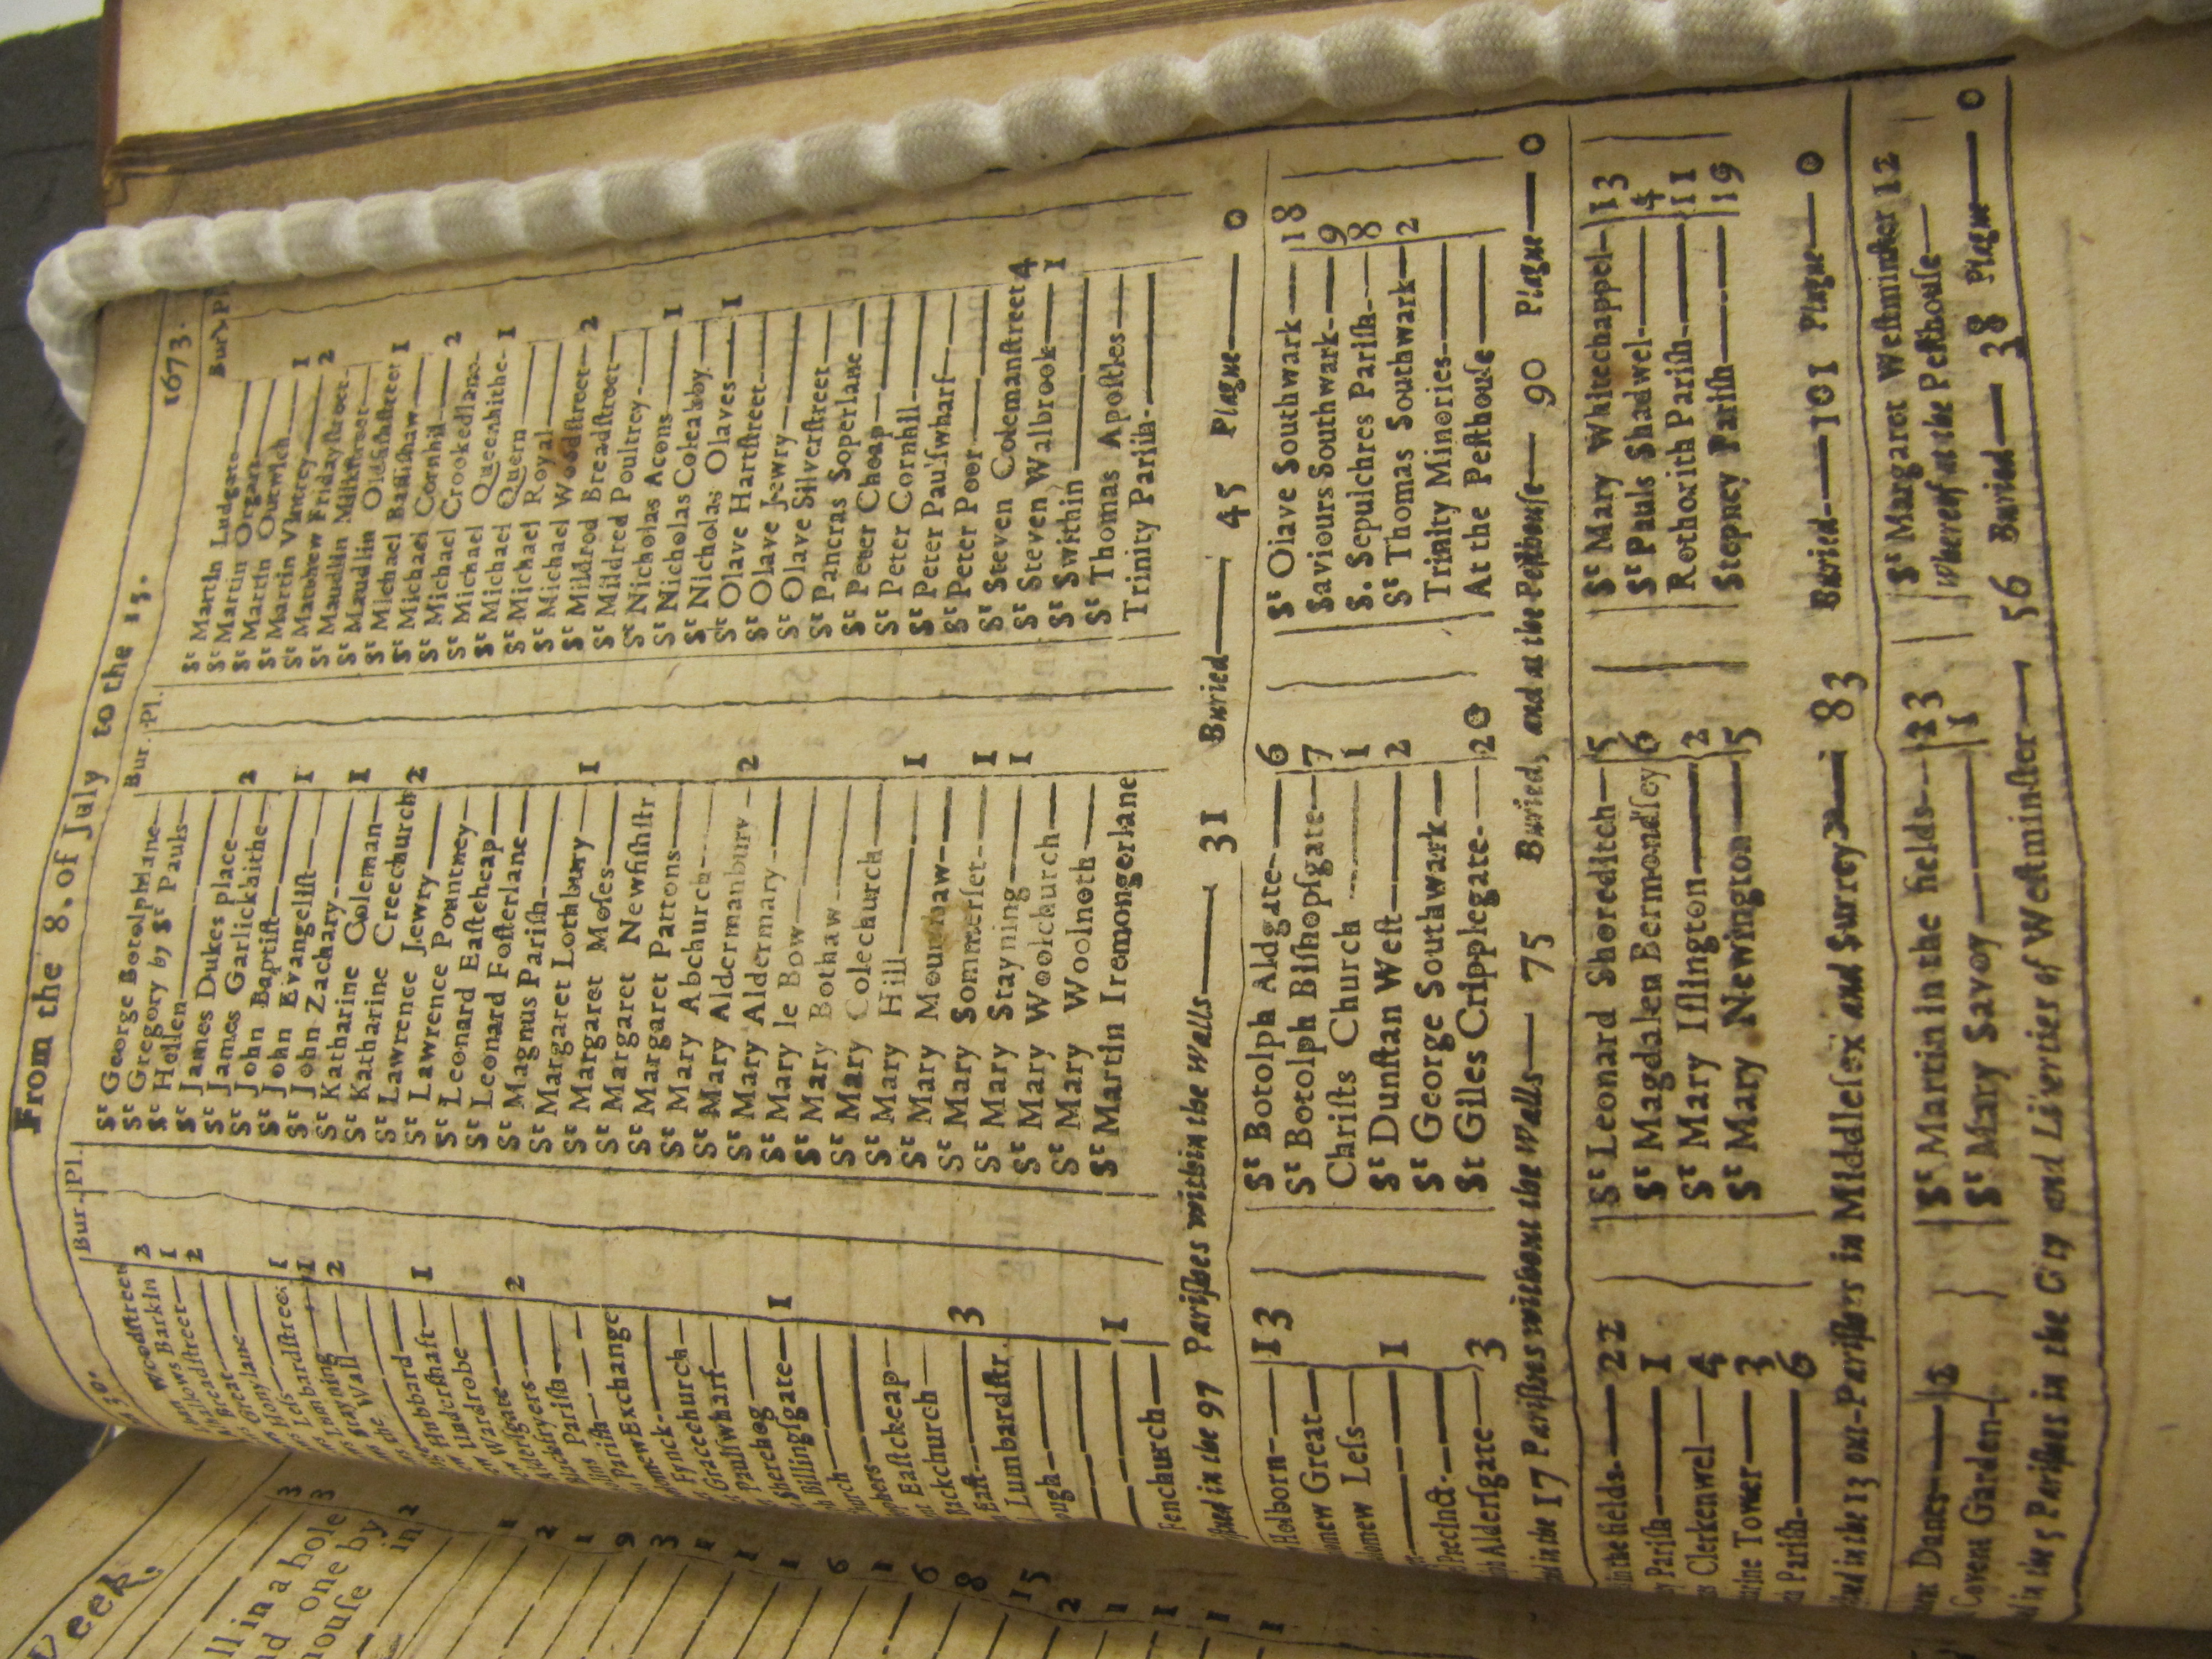 From the 8. of July to the 15. 1673.
Bur. Pl.
Woodstreet 2
Barkin 1
Breadstreet 2
Great
Honylane
Less 1
Lumbardstreet 1
Stayning 2
the Wall
Hubbard 1
Undershaft
Wardrobe
Aldersgate 2
Blackfryers
Parish
Parish
Exchange
Fynck
Gracechurch
Paulswharf
Sherehog
Billingsgate 1
Eastcheap
Backchurch
East 3
Lumbardstr.
Fenchurch
Bur. Pl.
St George Botolphlane
St Gregory by St Pauls
St Hellen
St James Dukes place 2
St James Garlickhithe
St John Baptist 1
St John Evangelist
St John Zachary 1
St Katharine Coleman
St Katharine Creechurch 2
St Lawrence Jewry
St Lawrence Pountney
St Leonard Eastcheap
St Leonard Fosterlane
St Magnus Parish
St Margaret Lothbury 1
St Margaret Moses
St Margaret Newfishstr.
St Margaret Pattons
St Mary Abchurch
St Mary Aldermanbury 2
St Mary Aldermary
St Mary le Bow
St Mary Bothaw
St Mary Colechurch
St Mary Hill 1
St Mary Mounthaw
St Mary Sommerset 1
St Mary Stayning 1
St Mary Woolchurch
St Mary Woolnoth
St Martin Iremongerlane
Bur. Pl
St Martin Ludgate
St Martin Orgars
St Martin Outwich 1
St Martin Vintrey 2
St Matthew Fridaystreet
St Maudlin Milkstreet
St Maudlin Oldfishstreet 1
St Michael Bassishaw
St Michael Cornhil 2
St Michael Crookedlane
St Michael Queenhithe 1
St Michael Quern
St Michael Royal
St Michael Woodstreet 2
St Mildred Breadstreet
St Mildred Poultrey
St Nicholas Acons 1
St Nicholas Coleabby
St Nicholas Olaves 1
St Olave Hartstreet
St Olave Jewry
St Olave Silverstreet
St Pancras Soperlane
St Peter Cheap
St Peter Cornhil
St Peter Paulswharf
St Peter Poor
St Steven Colemanstreet 4
St Steven Walbrook 1
St Swithin
St Thomas Apostles
Trinity Parish
in the 97 Parishes within the Walls 31 Buried 45 Plague 0
Holborn 13
Great
Less
1
Precinct
Aldersgate 3
St Botolph Aldgate 6
St Botolph Bishopsgate 7
Christs Church 1
St Dunstan West 2
St George Southwark
St Giles Cripplegate 20
St Olave Southwark 18
Saviours Southwark 9
S. Sepulchres Parish 8
St Thomas Southwark 2
Trinity Minories
At the Pesthouse
in the 17 Parishes without the Walls 75 Buried, and at the Pesthouse 90 Plague 0
in the fields 22
Parish 1
Clerkenwel 4
Tower 3
Parish 6
St Leonard Shoreditch 5
St Magdalen Bermondsey 6
St Mary Islington 2
St Mary Newington 5
St Mary Whitechappel 13
St Pauls Shadwel 4
Rothorith Parish 11
Stepney Parish 19
in the 13 out-Parishes in Middlesex and Surrey 83 Buried 101 Plague 0
Danes
Covent Garden
St Martin in the fields 23
St Mary Savoy 1
St Margaret Westminster 12
Whereof at the Pesthouse
in the 5 Parishes in the City and Liberties of Westminster 56 Buried 38 Plague 0
Week.
ll in a hole 3
nd one by 3
house in 2
1
2
1
9
3
1
1
1
6
1
6
8
15
2
1
1
1
1